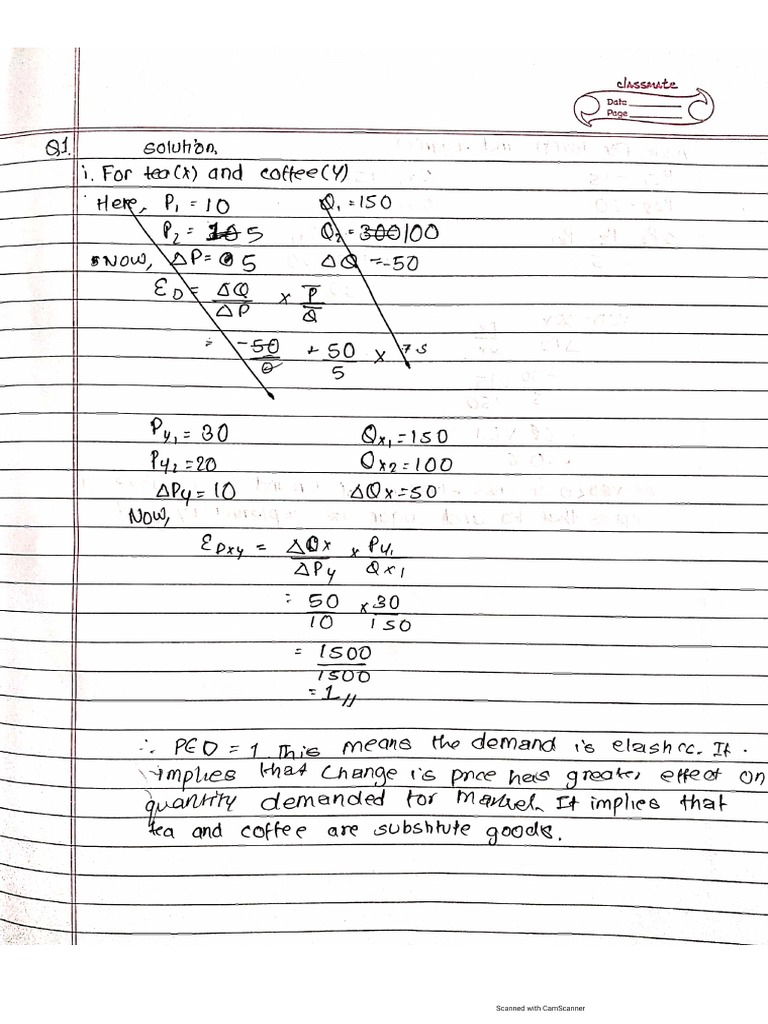 classmate
Date
Page
Q1. Solution,
i. For tea(x) and coffee(Y)
Here, P1 = 10 Q1 = 150
P2 = 5 Q2 = 300 100
Now, ΔP = 5 ΔQ = -50
ED = ΔQ/ΔP × P/Q
= -50/0 + 50/5 × 75
Py1 = 30 Qx1 = 150
Py2 = 20 Qx2 = 100
ΔPy = 10 ΔQx = 50
Now,
EDxy = ΔQx/ΔPy × Py1/Qx1
= 50/10 × 30/150
= 1500/1500
= 1 //
∴ PED = 1 This means the demand is elastic. It
implies that change is price has greater effect on
quantity demanded for Market. It implies that
tea and coffee are substitute goods.
Scanned with CamScanner